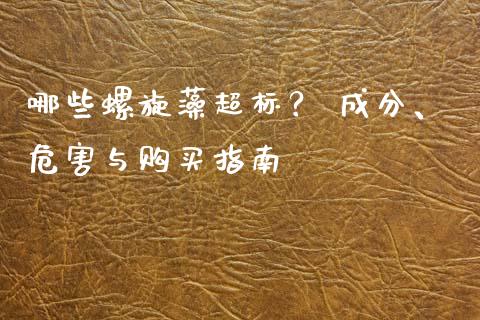 哪些螺旋藻超标？ 成分、
危害与购买指南